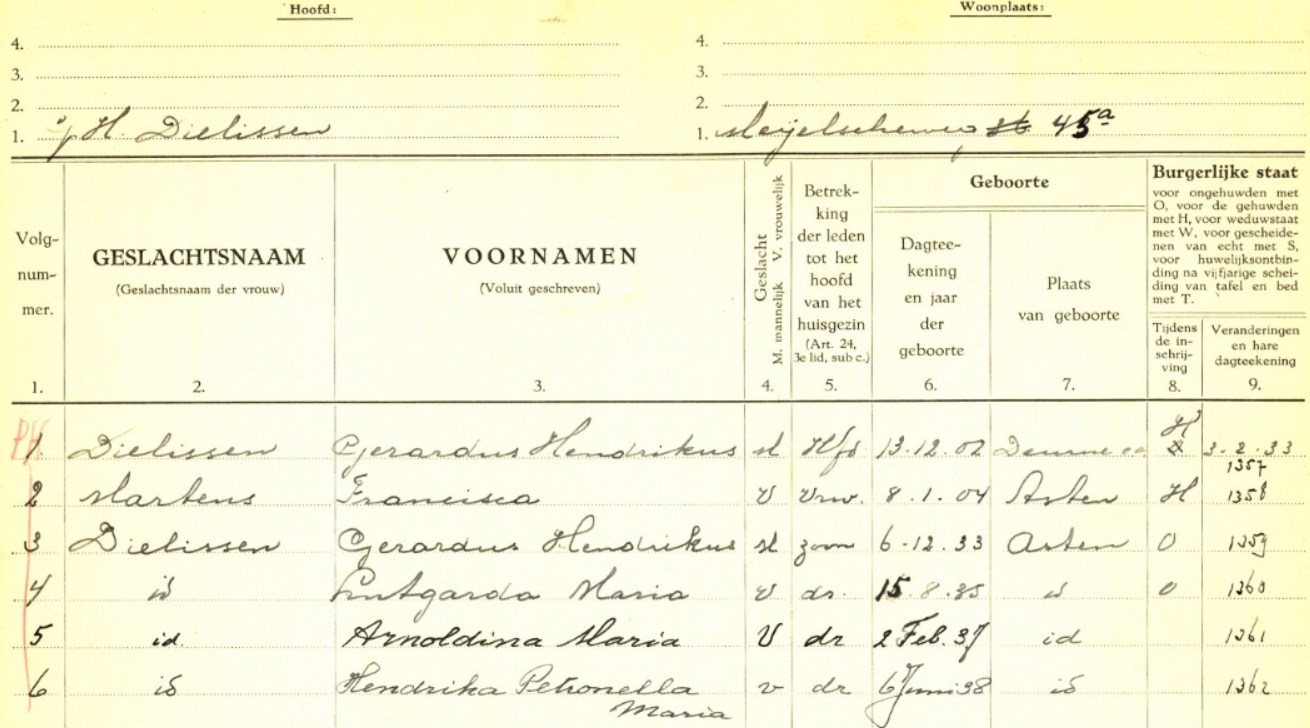 Hoofd: Woonplaats:
4. 4.
3. 3.
2. 2.
1. H. Dielissen 1. Meijelscheweg 45a
Volg-
num-
mer.
GESLACHTSNAAM
(Geslachtsnaam der vrouw)
VOORNAMEN
(Voluit geschreven)
Geslacht
M. mannelijk V. vrouwelijk
Betrek-
king
der leden
tot het
hoofd
van het
huisgezin
(Art. 24,
3e lid, sub c.)
Geboorte
Dagtee-
kening
en jaar
der
geboorte
Plaats
van geboorte
Burgerlijke staat
voor ongehuwden met
O, voor de gehuwden
met H, voor weduwstaat
met W, voor gescheide-
nen van echt met S,
voor huwelijksontbin-
ding na vijfjarige schei-
ding van tafel en bed
met T.
Tijdens
de in-
schrij-
ving
Veranderingen
en hare
dagteekening
1. 2. 3. 4. 5. 6. 7. 8. 9.
1. Dielissen Gerardus Hendrikus M Hfd 13.12.02 Deurne ca H 3.2.33
1357
2 Martens Francisca V Vrw. 8.1.04 Asten H 1358
3 Dielissen Gerardus Hendrikus M zoon 6-12.33 Asten O 1359
4 id Lutgarda Maria V dr. 15.8.35 id O 1360
5 id. Arnoldina Maria V dr 2 Feb. 37 id 1361
6 id Hendrika Petronella v dr 6 Juni 38 id 1362
Maria